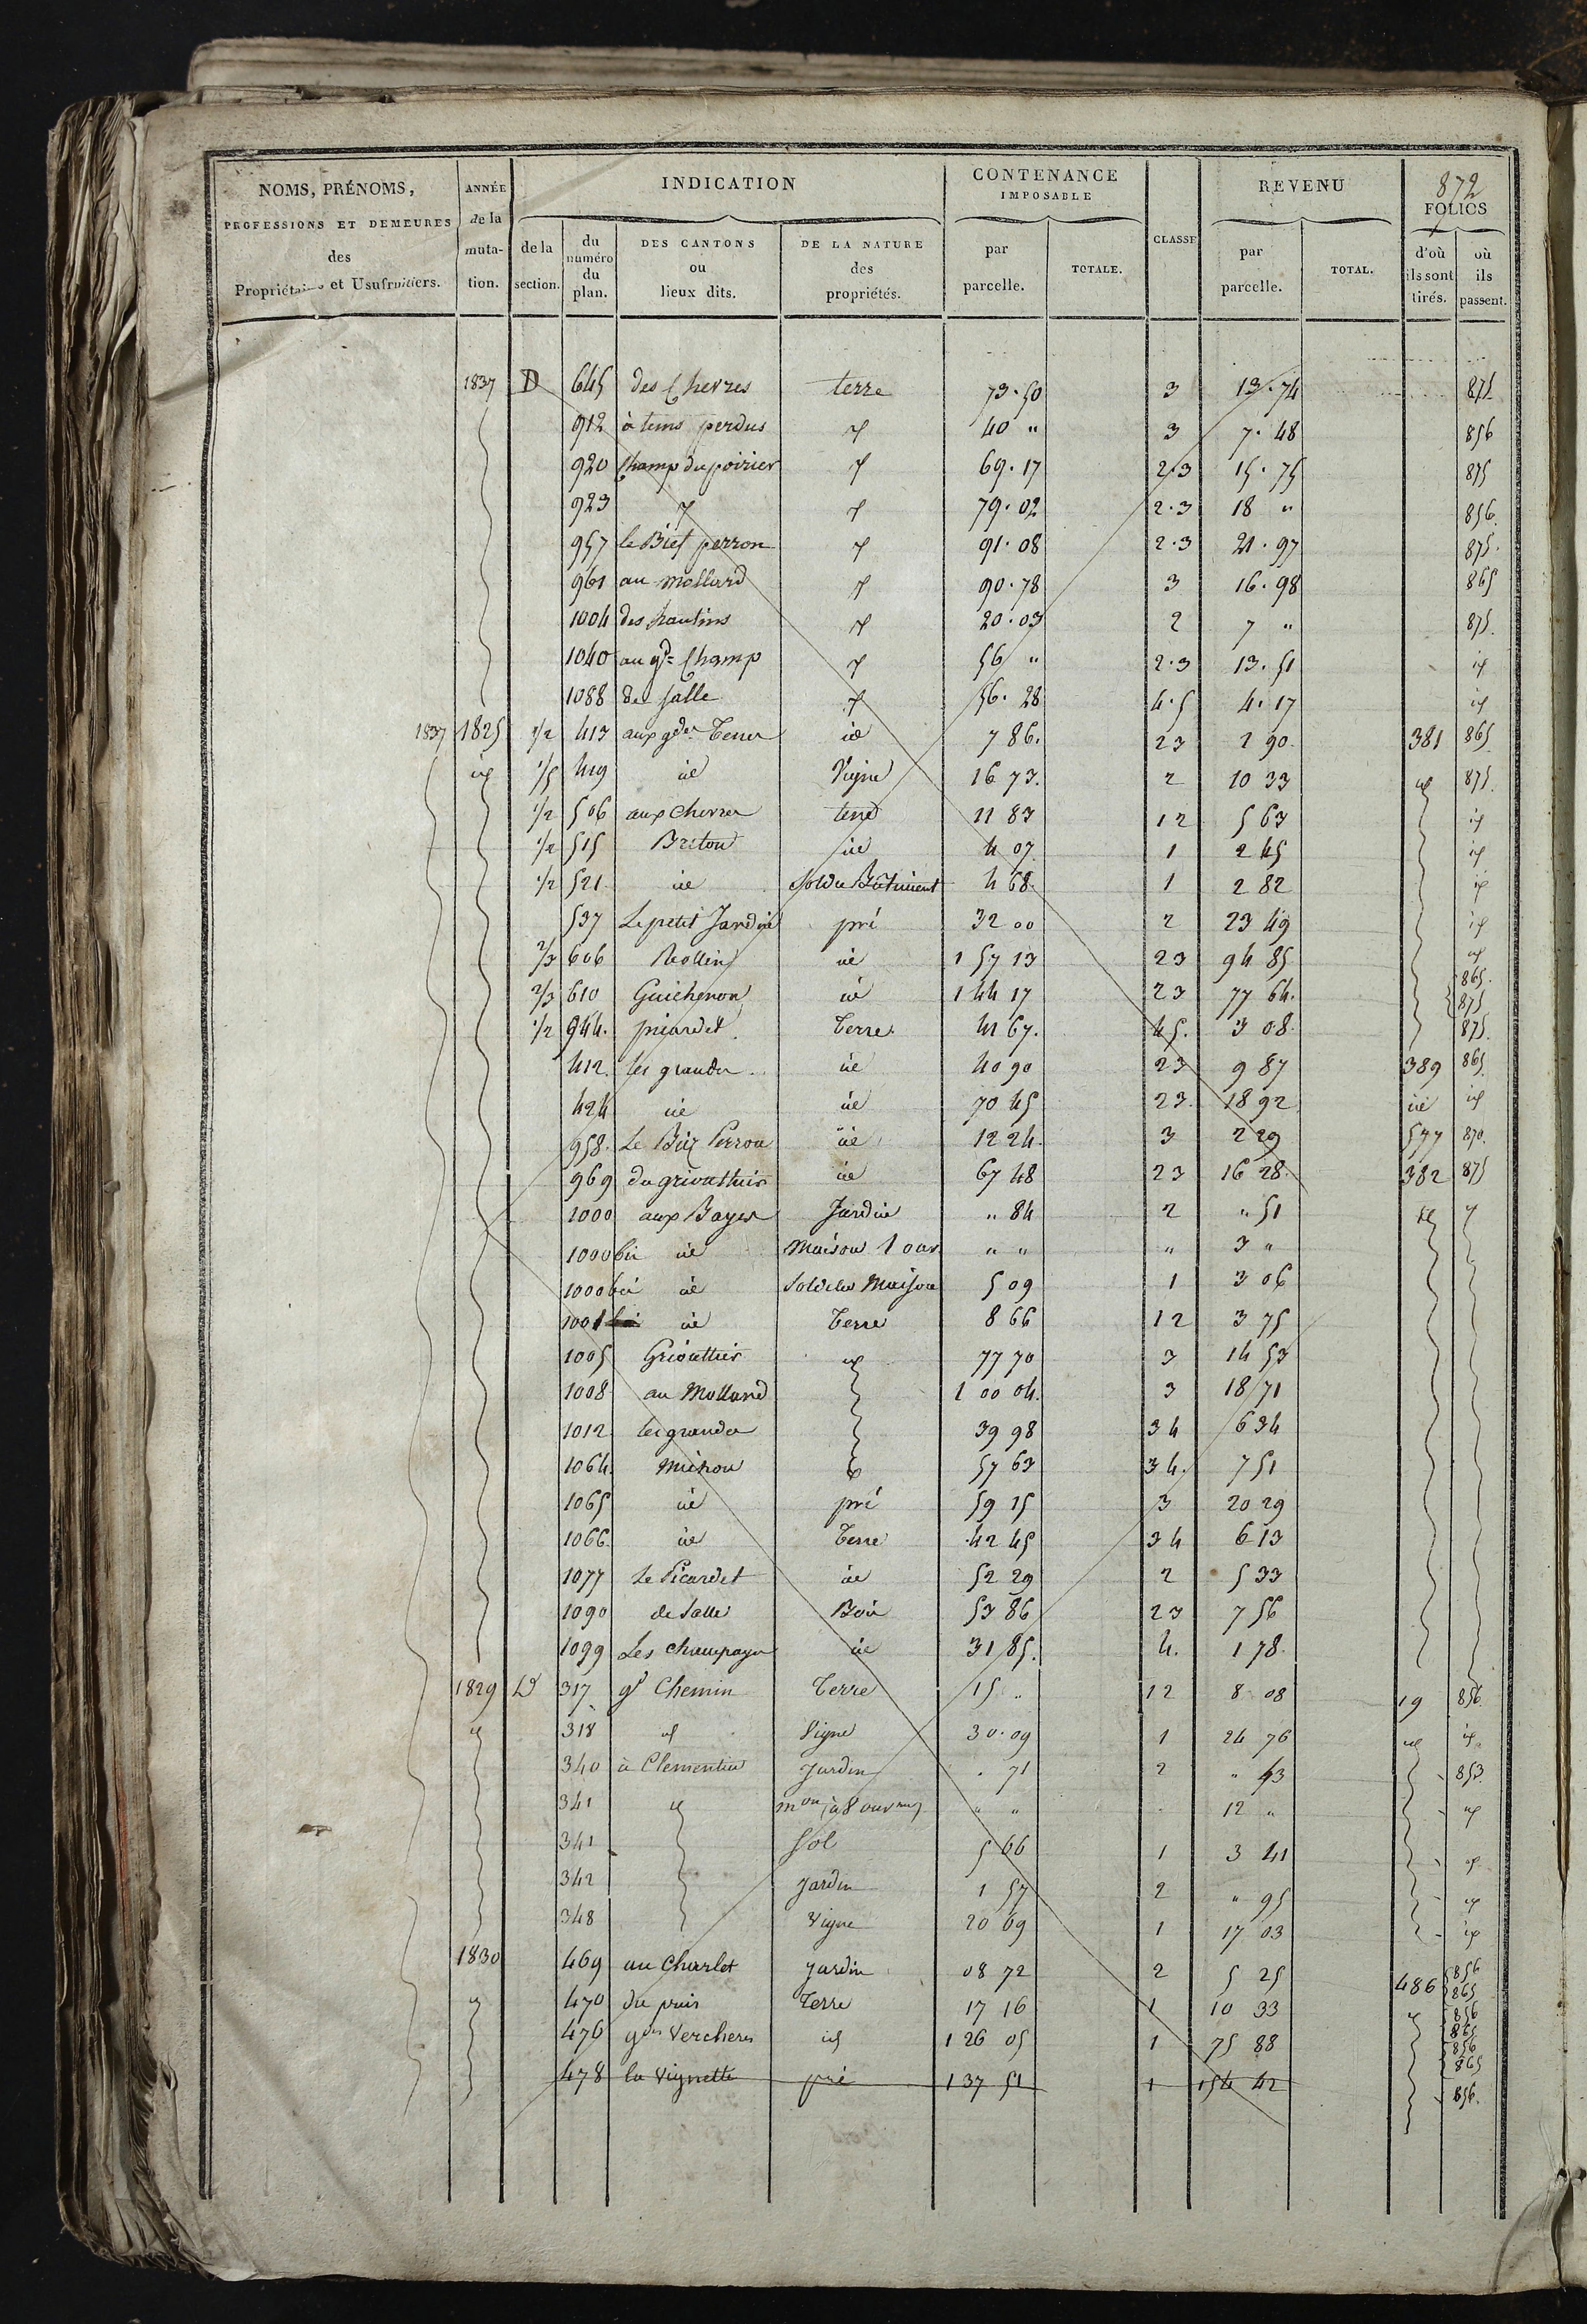 872
NOMS, PRÉNOMS, PROFESSIONS ET DEMEURES des Propriétaires et Usufruitiers.
ANNÉE de la mutation.
INDICATION
de la section.
du numéro du plan.
DES CANTONS ou lieux dits.
DE LA NATURE des propriétés.
CONTENANCE IMPOSABLE
par parcelle.
TOTALE.
CLASSE
REVENU
par parcelle.
TOTAL.
FOLIOS
d'où ils sont tirés.
où ils passent.
1837 D 645 des Chevres terre 73.50 3 13.74 875
912 à tems perdus id 40 " 3 7.48 856
920 Champ du poirier id 69.17 2.3 15.75 875
923 id id 79.02 2.3 18 " 856.
957 le Bief perron id 91.08 2.3 21.97 875.
961 au mollard id 90.78 3 16.98 865
1004 des hautins id 20.03 2 7 " 875.
1040 au gd Champ id 56 " 2.3 13.51 id
1088 de Salle id 56.28 4.5 4.17 id
1837 1825 1/2 413 aux gdes Terres id 7 86. 23 2 90. 381 865
id 1/5 419 id Vigne 16 73. 2 10 33 id 875.
1/2 506 aux Chevres terre 11 83 12 5 63 id
1/2 515 Breton id 4 07 1 2 45 id
1/2 521 id Sol du Bâtiment 4 68. 1 2 82 id
537 Le petit Jardin pré 32 00 2 23 49 id
2/3 606 Rollin id 1 57 13 23 94 85 id
2/3 610 Guichenon id 1 44 17 23 77 64. 865. 875
1/2 944. picardet Terre 41 67. 45. 3 08. 875.
412. les grandes id 40 90 23 9 87 389 865.
424 id id 70 45 23. 18 92 id id
958. Le Biez Perron id 12 24. 3 2 29 577 870.
969 du griouttier id 67 48 23 16 28. 382 875
1000 aux Bayes Jardin " 84 2 " 51 id id
1000 bis id Maison 1 ouv " " " 3 "
1000 bis id Sol de la Maison 5 09 1 3 06
1001 id Terre 8 66 12 3 75
1005 Griouttier id 77 70 3 14 53
1008 au Mollard 1 00 04. 3 18 71
1012 les grandes 39 98 34 6 34
1064. Michon 57 63 34. 7 51
1065 id pré 59 15 3 20 29
1066. id Terre 42 45 34 6 13
1077 Le Picardet id 52 29 2 5 33
1090 de Salle Bois 53 86 23 7 56
1099 Les champagne id 31 85. 4. 1 78.
1829 D 317 gd Chemin Terre 15 " 12 8 08 19 856.
id 318 id Vigne 30.09 1 24 76 id id
340 à Clementin Jardin . 71 2 " 43 853.
341 id mon à 8 ouvres " " 12 " id
341 Sol 5 66 1 3 41 id
342 Jardin 1 57 2 " 95 id
348 Vigne 20 69 1 17 03 id
1830 469 au Charlet Jardin 08 72 2 5 25 486 856 865
id 470 du puis Terre 17 16 1 10 33 id 856 865
476 gdes Vercheres id 1 26 05 1 75 88 856 865
478 la Vignette pré 1 37 51 1 154 42 856.